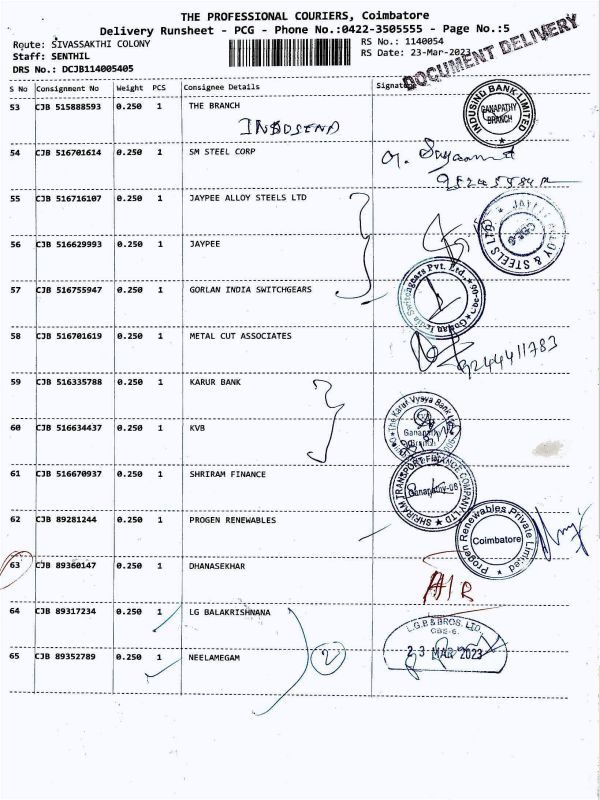 THE PROFESSIONAL COURIERS, Coimbatore
Delivery Runsheet - PCG - Phone No.:0422-3505555 - Page No.:5
Route: SIVASSAKTHI COLONY
RS No.: 1140054
Staff: SENTHIL
RS Date: 23-Mar-2023
DRS No.: DCJB114005405
DOCUMENT DELIVERY
S No Consignment No Weight PCS Consignee Details Signature
53 CJB 515888593 0.250 1 THE BRANCH
INDUSIND BANK LIMITED
GANAPATHY
BRANCH
54 CJB 516701614 0.250 1 SM STEEL CORP
55 CJB 516716107 0.250 1 JAYPEE ALLOY STEELS LTD
56 CJB 516629993 0.250 1 JAYPEE
57 CJB 516755947 0.250 1 GORLAN INDIA SWITCHGEARS
58 CJB 516701619 0.250 1 METAL CUT ASSOCIATES
9244411783
59 CJB 516335788 0.250 1 KARUR BANK
60 CJB 516634437 0.250 1 KVB
The Karur Vysya Bank
Ganapathy
61 CJB 516670937 0.250 1 SHRIRAM FINANCE
SHRIRAM TRANSPORT FINANCE COMPANY LTD
Ganapathy-06
62 CJB 89281244 0.250 1 PROGEN RENEWABLES
Progen Renewables Private Limited
Coimbatore
63 CJB 89360147 0.250 1 DHANASEKHAR
64 CJB 89317234 0.250 1 LG BALAKRISHNANA
L.G.B & BROS. LTD.
CBE-6.
65 CJB 89352789 0.250 1 NEELAMEGAM
2
23 MAR 2023